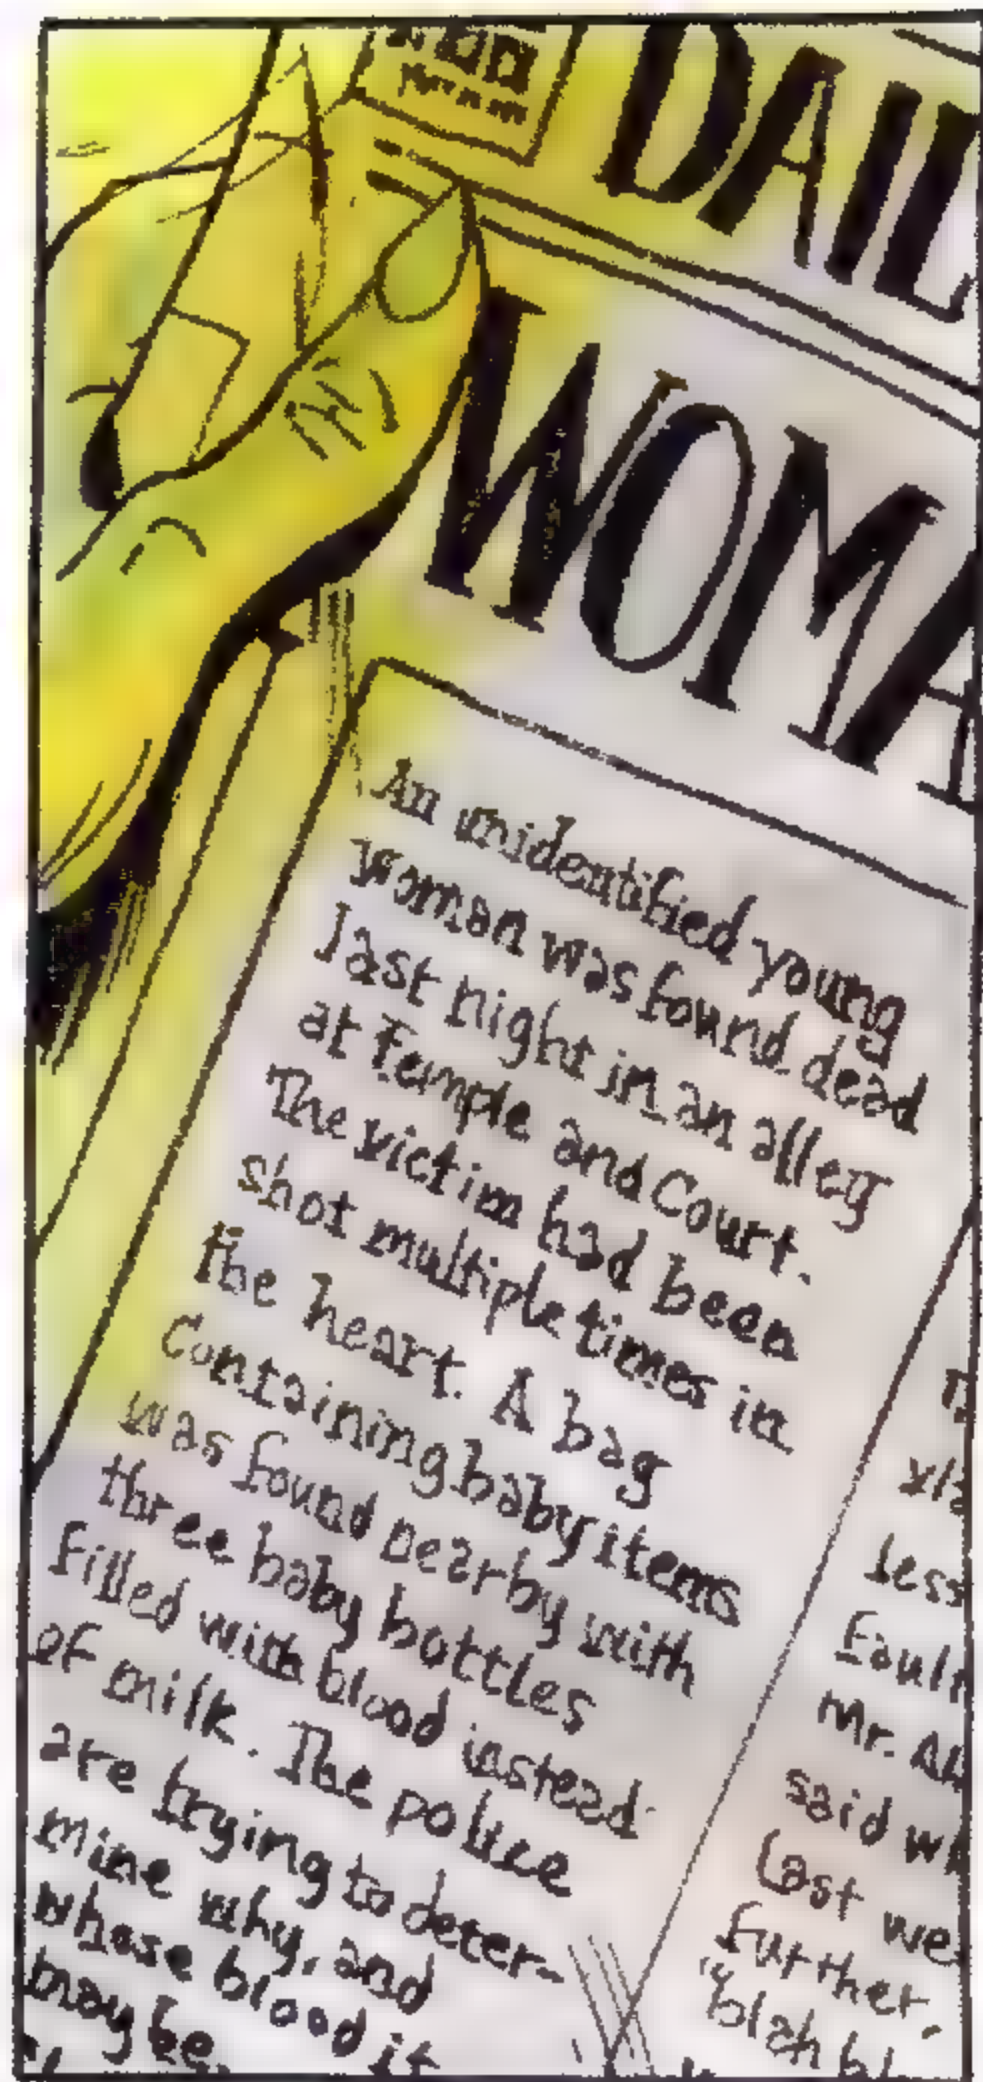 DAIL
WOMA
An unidentified young
woman was found dead
last night in an alley
at Temple and Court.
The victim had been
shot multiple times in
the heart. A bag
containing baby items
was found nearby with
three baby bottles
filled with blood instead
of milk. The police
are trying to deter-
mine why, and
whose blood it
may be.
less
Fault
Mr. Al
said wh
last we
further,
"blah bl